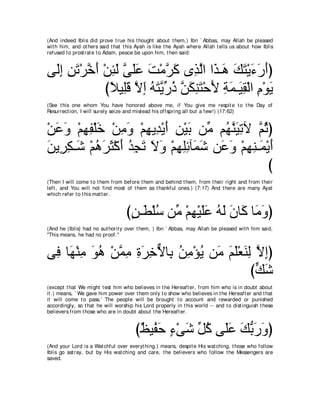 (And indeed Iblis did prove true his thought about them.) Ibn `Abbas, may Allah be pleased
with him, and others said that this Ayah is like the Ayah where Allah tells us about how Iblis
refused to prostrate to Adam, peace be upon him, then said:
(أَرَءَيْتَكَ هَـذَا الَّذِى كَرَّمْتَ عَلَىَّ لَئِنْ أَخَّرْتَنِ إِلَى
يَوْمِ الْقِيَـمَةِ لأَحْتَنِكَنَّ ذُرِّيَّتَهُ إِلاَّ قَلِيلاً)
(See this one whom You have honored above me, if You give me respite to the Day of
Resurrection, I will surely seize and mislead his offspring all but a few!) (17:62)
(ثُمَّ لآتِيَنَّهُمْ مِّن بَيْنِ أَيْدِيهِمْ وَمِنْ خَلْفِهِمْ وَعَنْ
أَيْمَـنِهِمْ وَعَن شَمَآئِلِهِمْ وَلاَ تَجِدُ أَكْثَرَهُمْ شَـكِرِينَ
)
(Then I will come to them from before them and behind them, from their right and from their
left, and You will not find most of them as thankful ones.) (7:17) And there are many Ayat
which refer to this matter.
(وَمَا كَانَ لَهُ عَلَيْهِمْ مِّن سُلْطَـنٍ)
(And he (Iblis) had no authority over them, ) Ibn `Abbas, may Allah be pleased with him said,
"This means, he had no proof."
(إِلاَّ لِنَعْلَمَ مَن يُؤْمِنُ بِالاٌّخِرَةِ مِمَّنْ هُوَ مِنْهَا فِى
شَكٍّ)
(except that We might test him who believes in the Hereafter, from him who is in doubt about
it.) means, `We gave him power over them only to show who believes in the Hereafter and that
it will come to pass.' The people will be brought to account and rewarded or punished
accordingly, so that he will worship his Lord properly in this world -- and to distinguish these
believers from those who are in doubt about the Hereafter.
(وَرَبُّكَ عَلَى كُلِّ شَىْءٍ حَفُيظٌ)
(And your Lord is a Watchful over everything.) means, despite His watching, those who follow
Iblis go astray, but by His watching and care, the believers who follow the Messengers are
saved.